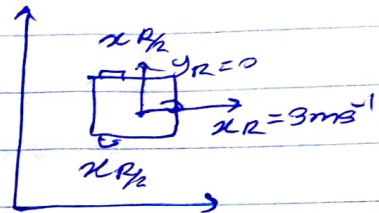 x R/2
y_R = 0
x_R = 3ms^-1
x R/2